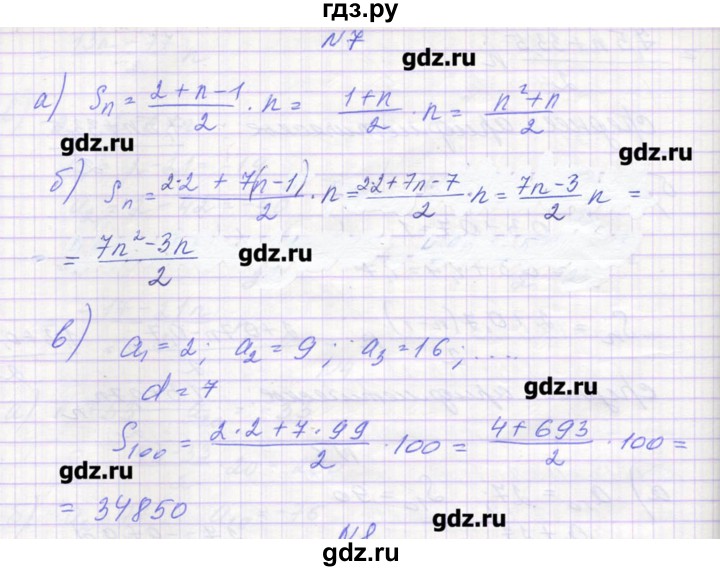 гдз.ру
N7
gdz.ru
а) Sn = (2 + n - 1)/2 · n = (1 + n)/2 · n = (n² + n)/2
gdz.ru
gdz.ru
б) Sn = (2·2 + 7(n-1))/2 · n = (2·2 + 7n - 7)/2 · n = (7n - 3)/2 n =
= (7n² - 3n)/2
gdz.ru
в) a₁ = 2; a₂ = 9; a₃ = 16; ....
d = 7
gdz.ru
S₁₀₀ = (2·2 + 7·99)/2 · 100 = (4 + 693)/2 · 100 =
gdz.ru
= 34850
gdz.ru
N8
gdz.ru